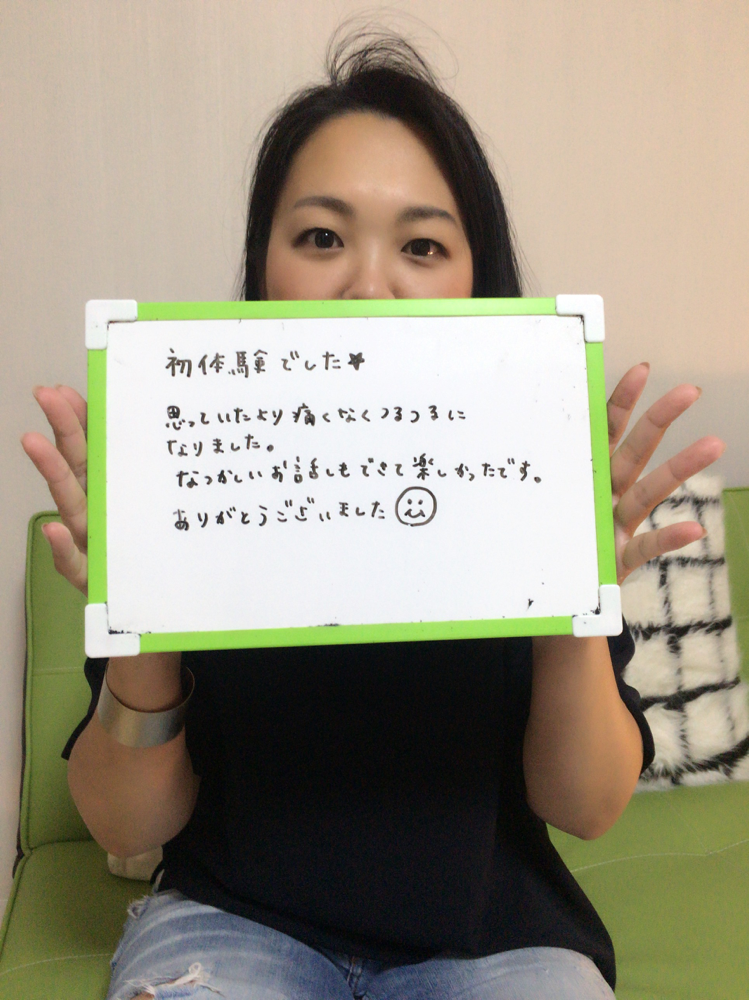 初体験でした★
思っていたより痛くなくつるつるに
なりました。
なつかしいお話しもできて楽しかったです。
ありがとうございました